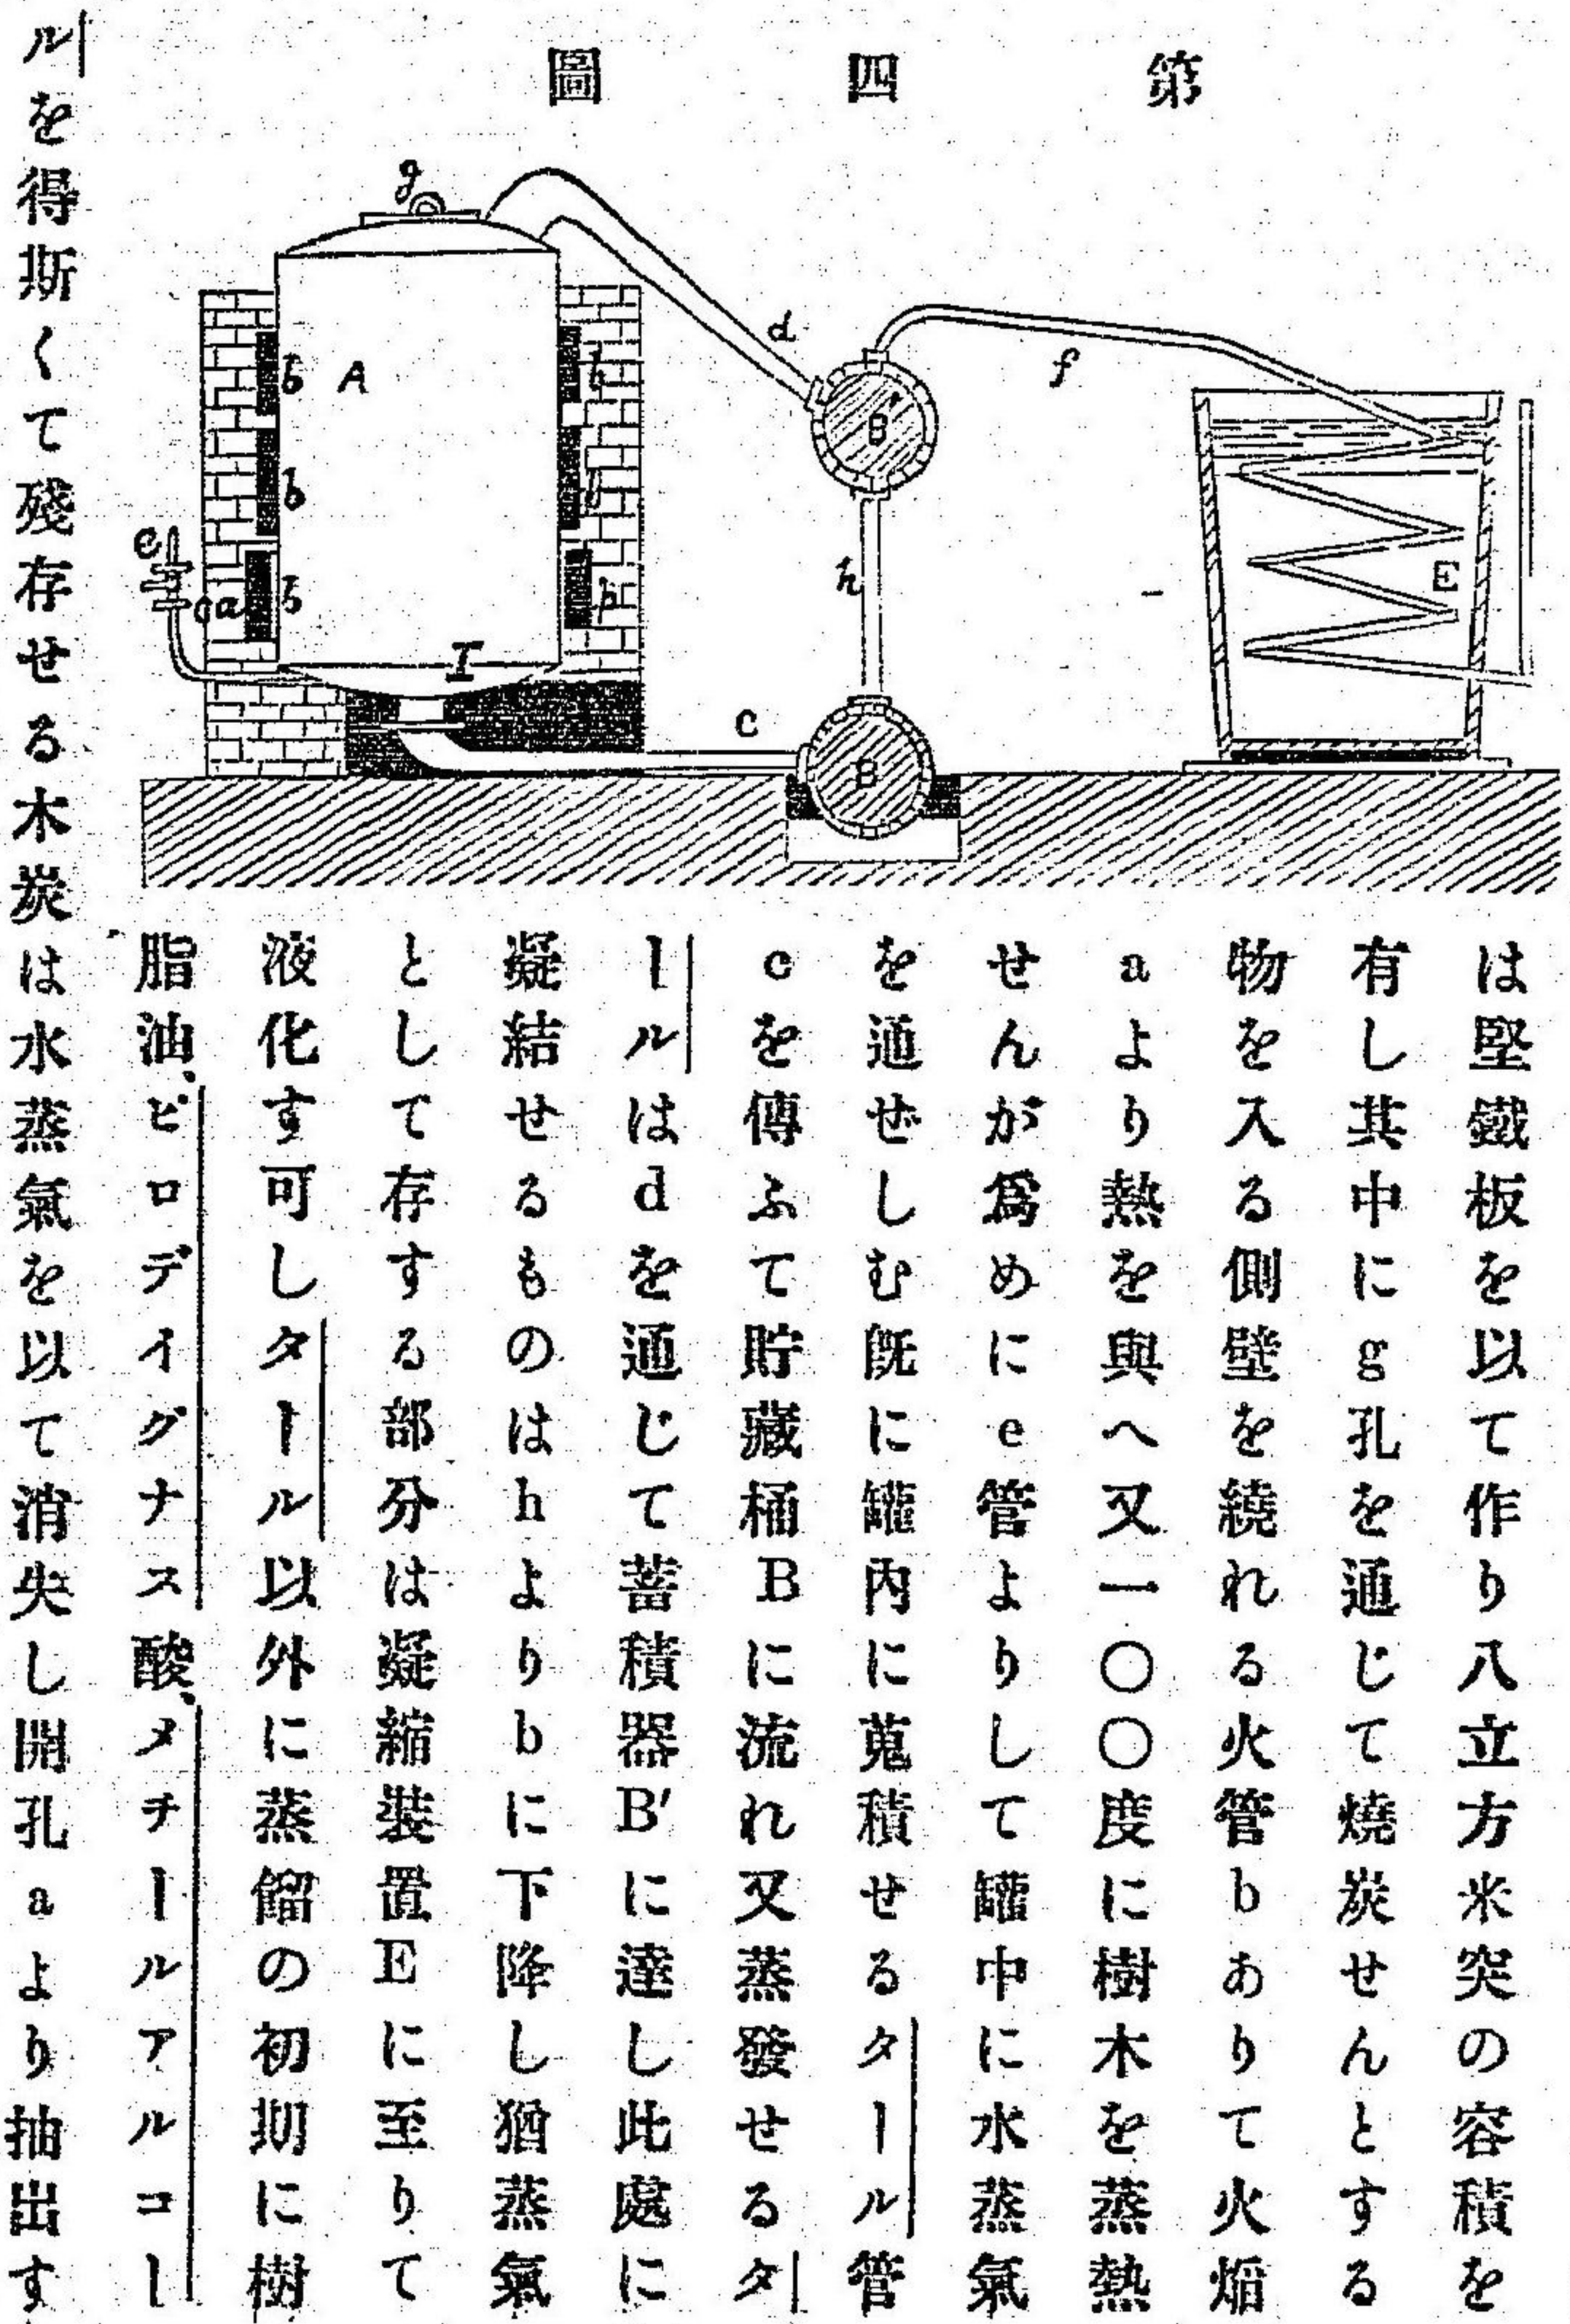 第四圖
g
d
f
b
A
b
B'
b
b
e
h
E
a
b
b
I
c
B
は堅鐵板を以て作り八立方米突の容積を
有し其中にg孔を通じて燒炭せんとする
物を入る側壁を繞れる火管bありて火焰
aより熱を與へ又一〇〇度に樹木を蒸熱
せんが爲めにe管よりして罐中に水蒸氣
を通ぜしむ既に罐内に蒐積せるタール管
cを傳ふて貯藏桶Bに流れ又蒸發せるタ
ールはdを通じて蓄積器B'に達し此處に
凝結せるものはhよりbに下降し猶蒸氣
として存する部分は凝縮裝置Eに至りて
液化す可しタール以外に蒸餾の初期に樹
脂油、ピロデイグナス酸、メチールアルコー
ルを得斯くて殘存せる木炭は水蒸氣を以て消失し開孔aより抽出す